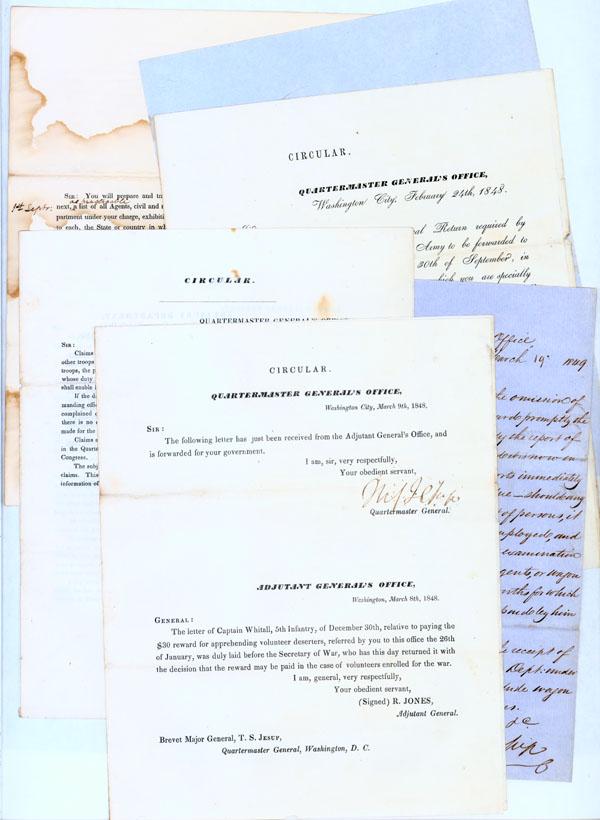 SIR: You will prepare and tr
as practicable
1st Septr.
next, a list of all Agents, civil and
partment under your charge, exhibiti
to each, the State or country in wh
CIRCULAR.
QUARTERMASTER GENERAL'S OFFICE,
Washington City, February 24th, 1848.
al Return required by
Army to be forwarded to
30th of September, in
which you are specially
CIRCULAR.
QUARTERMASTER GENERAL'S OFFICE
SIR:
Claims
other troops
troops, the p
whose duty
shall enable
If the d
manding offic
complained o
there is no
made for the
Claims
in the Quart
Congress.
The subj
claims. This
information of
Office
March 19 1849
the omission of
promptly the
by the report of
now on
immediately
should any
of persons, it
employed, and
examination
agents, or wagon
months for which
him
receipt of
Dept: under
wagon
&c
CIRCULAR.
QUARTERMASTER GENERAL'S OFFICE,
Washington City, March 9th, 1848.
SIR:
The following letter has just been received from the Adjutant General's Office, and
is forwarded for your government.
I am, sir, very respectfully,
Your obedient servant,
Quartermaster General.
ADJUTANT GENERAL'S OFFICE,
Washington, March 8th, 1848.
GENERAL:
The letter of Captain Whitall, 5th Infantry, of December 30th, relative to paying the
$30 reward for apprehending volunteer deserters, referred by you to this office the 26th
of January, was duly laid before the Secretary of War, who has this day returned it with
the decision that the reward may be paid in the case of volunteers enrolled for the war.
I am, general, very respectfully,
Your obedient servant,
(Signed) R. JONES,
Adjutant General.
Brevet Major General, T. S. JESUP,
Quartermaster General, Washington, D. C.